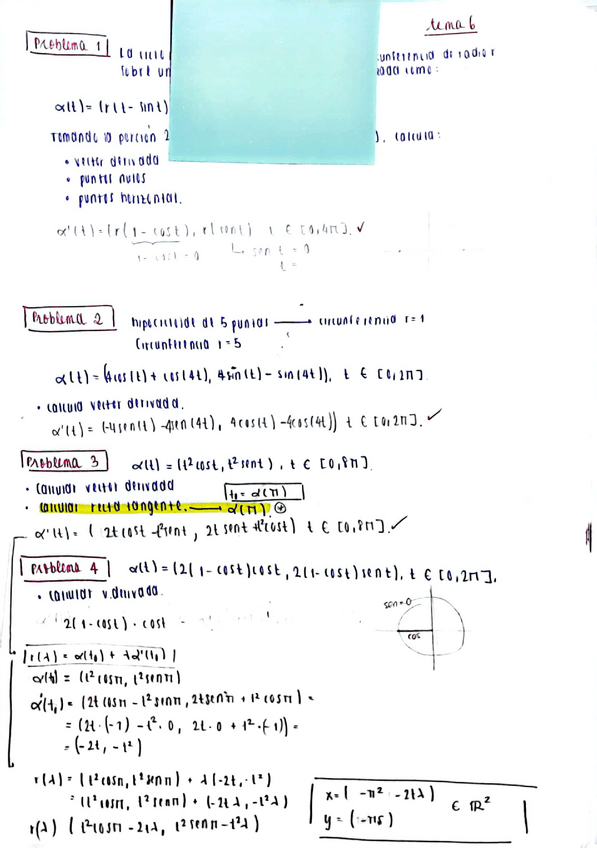 tema 6
Problema 1
La cicl unferencia de radio r
sobre un ada como:
α(t)=(r(t- sint)
Tomando la porción 2 ), calcula:
• vector derivada
• puntos nulos
• puntos horizontal.
α'(t)=(r(1-cost), r(sent) t ∈ [0,4π]. ✓
1-cost=0 ↳ sen t = 0
t =
Problema 2 hipocicloide de 5 puntas → circunferencia r=1
Circunferencia r=5
α(t)=(4cos(t)+cos(4t), 4sin(t)-sin(4t)), t ∈ [0,2π].
• calcula vector derivada.
α'(t)=(-4sen(t)-4sen(4t), 4cos(t)-4cos(4t)) t ∈ [0,2π]. ✓
Problema 3 α(t)=(t²cost, t²sent), t ∈ [0,8π].
• Calcular vector derivada t₀=α(π)
• Calcular recta tangente. → α(π).
α'(t)=( 2tcost-t²sent, 2tsent+t²cost) t ∈ [0,8π]. ✓
Problema 4 α(t)=(2(1-cost)cost, 2(1-cost)sent), t ∈ [0,2π].
• Calcular v.derivada.
sen=0
cos
2(1-cost)·cost -
r(λ)=α(t₀)+λα'(t₀)
α(t₀)=(t²cosπ, t²senπ)
α'(t₀)=(2tcosπ-t²senπ, 2tsenπ+t²cosπ)=
=(2t·(-1)-t²·0, 2t·0+t²·(-1))=
=(-2t, -t²)
r(λ)=(t²cosπ, t²senπ)+λ(-2t, -t²)
=(t²cosπ, t²senπ)+(-2tλ, -t²λ)
r(λ) (t²cosπ-2tλ, t²senπ-t²λ)
x=( -π² -2tλ)
y=( ∈ ℝ²